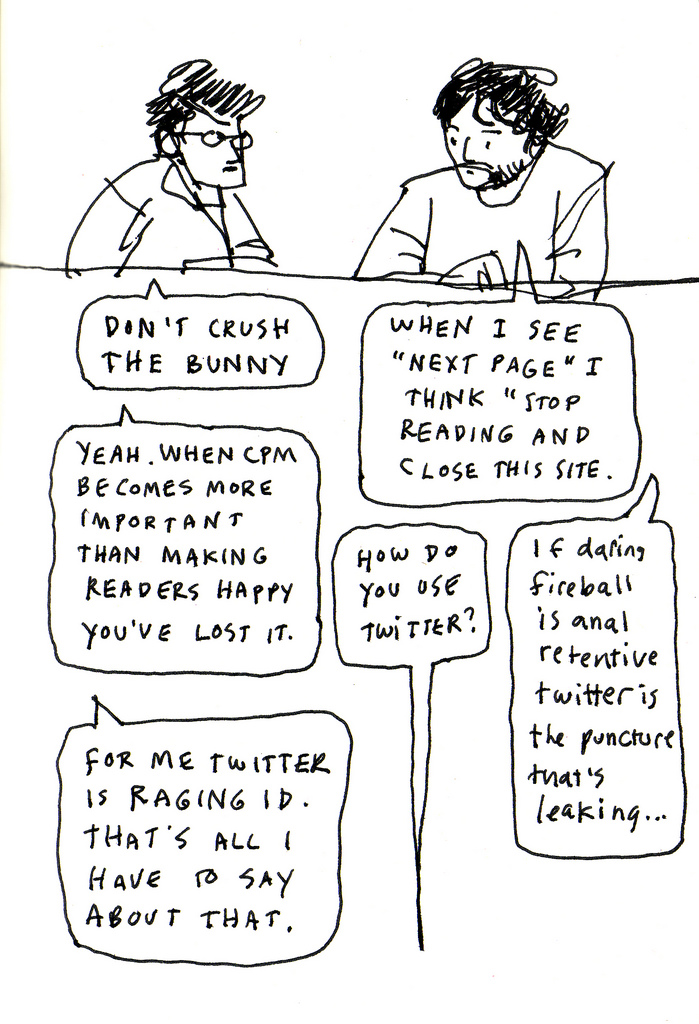 DON'T CRUSH
THE BUNNY
WHEN I SEE
"NEXT PAGE" I
THINK "STOP
READING AND
CLOSE THIS SITE.
YEAH. WHEN CPM
BECOMES MORE
IMPORTANT
THAN MAKING
READERS HAPPY
YOU'VE LOST IT.
HOW DO
YOU USE
TWITTER?
If daring
fireball
is anal
retentive
twitter is
the puncture
that's
leaking...
FOR ME TWITTER
IS RAGING ID.
THAT'S ALL I
HAVE TO SAY
ABOUT THAT.